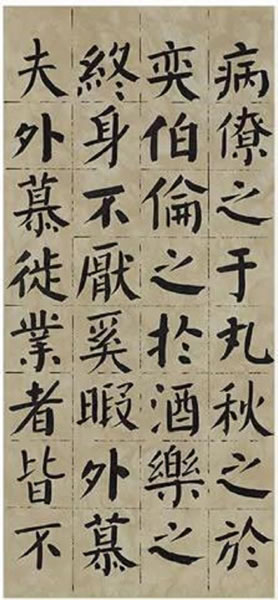 病僚之于丸秋之於
奕伯倫之於酒樂之
終身不厭奚暇外慕
夫外慕徙業者皆不